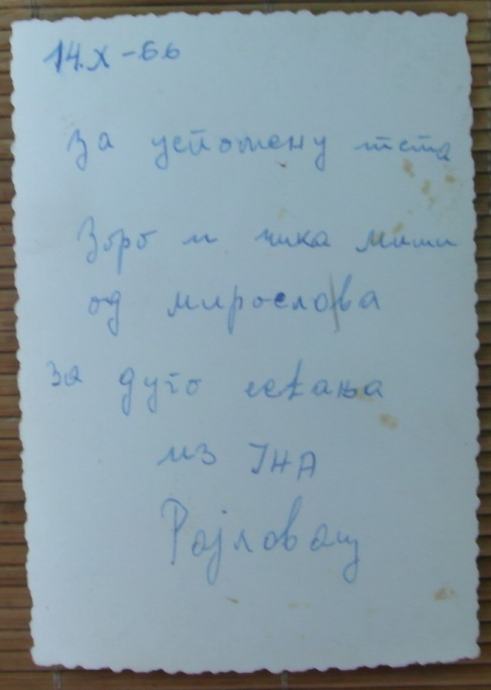 14.X-66
За успомену тета
Зоро и чика Миши
од мирослова
за дуго сећања
из ЈНА
Рајловац